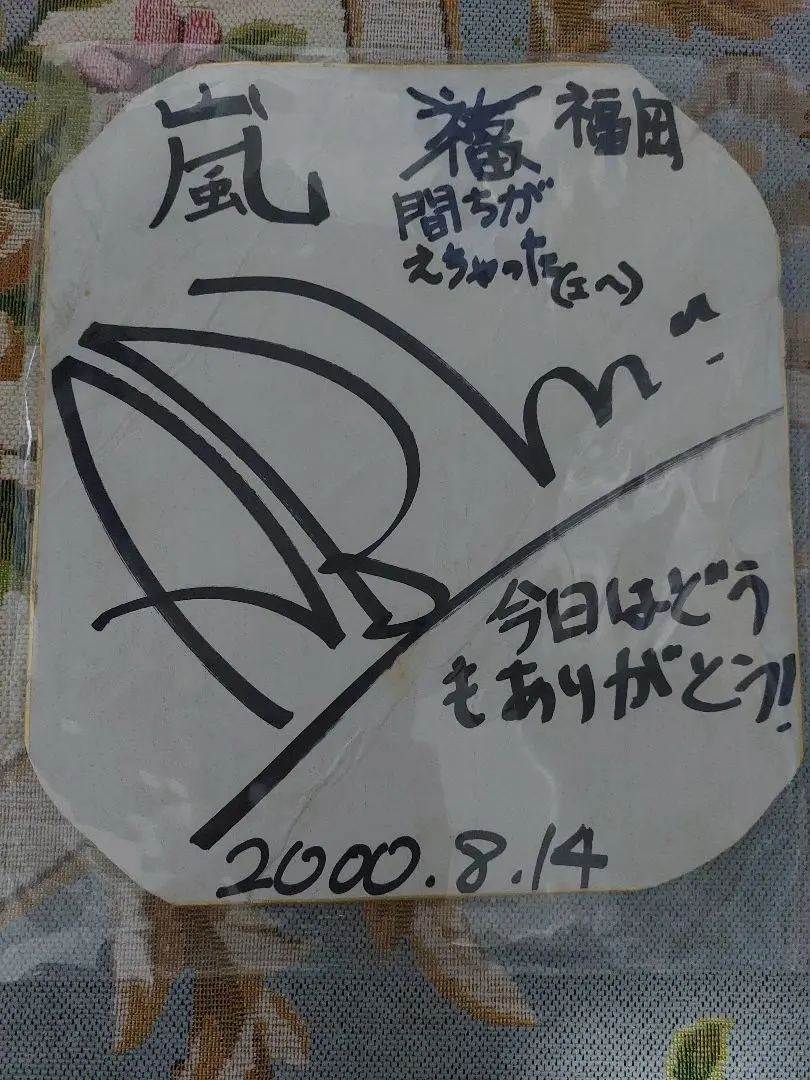 嵐 福 福岡
間ちが
えちゃった(エヘ)
今日はどう
もありがとう!
2000.8.14